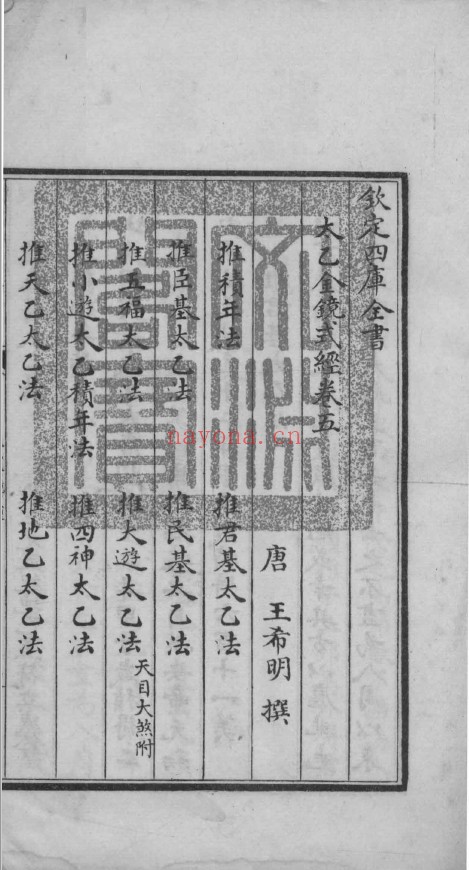 欽定四庫全書
太乙金鏡式經卷五
唐 王希明 撰
推積年法 推君基太乙法
推臣基太乙法 推民基太乙法
推五福太乙法 推大遊太乙法 天目大煞附
推小遊太乙積年法 推四神太乙法
推天乙太乙法 推地乙太乙法
nayona.cn